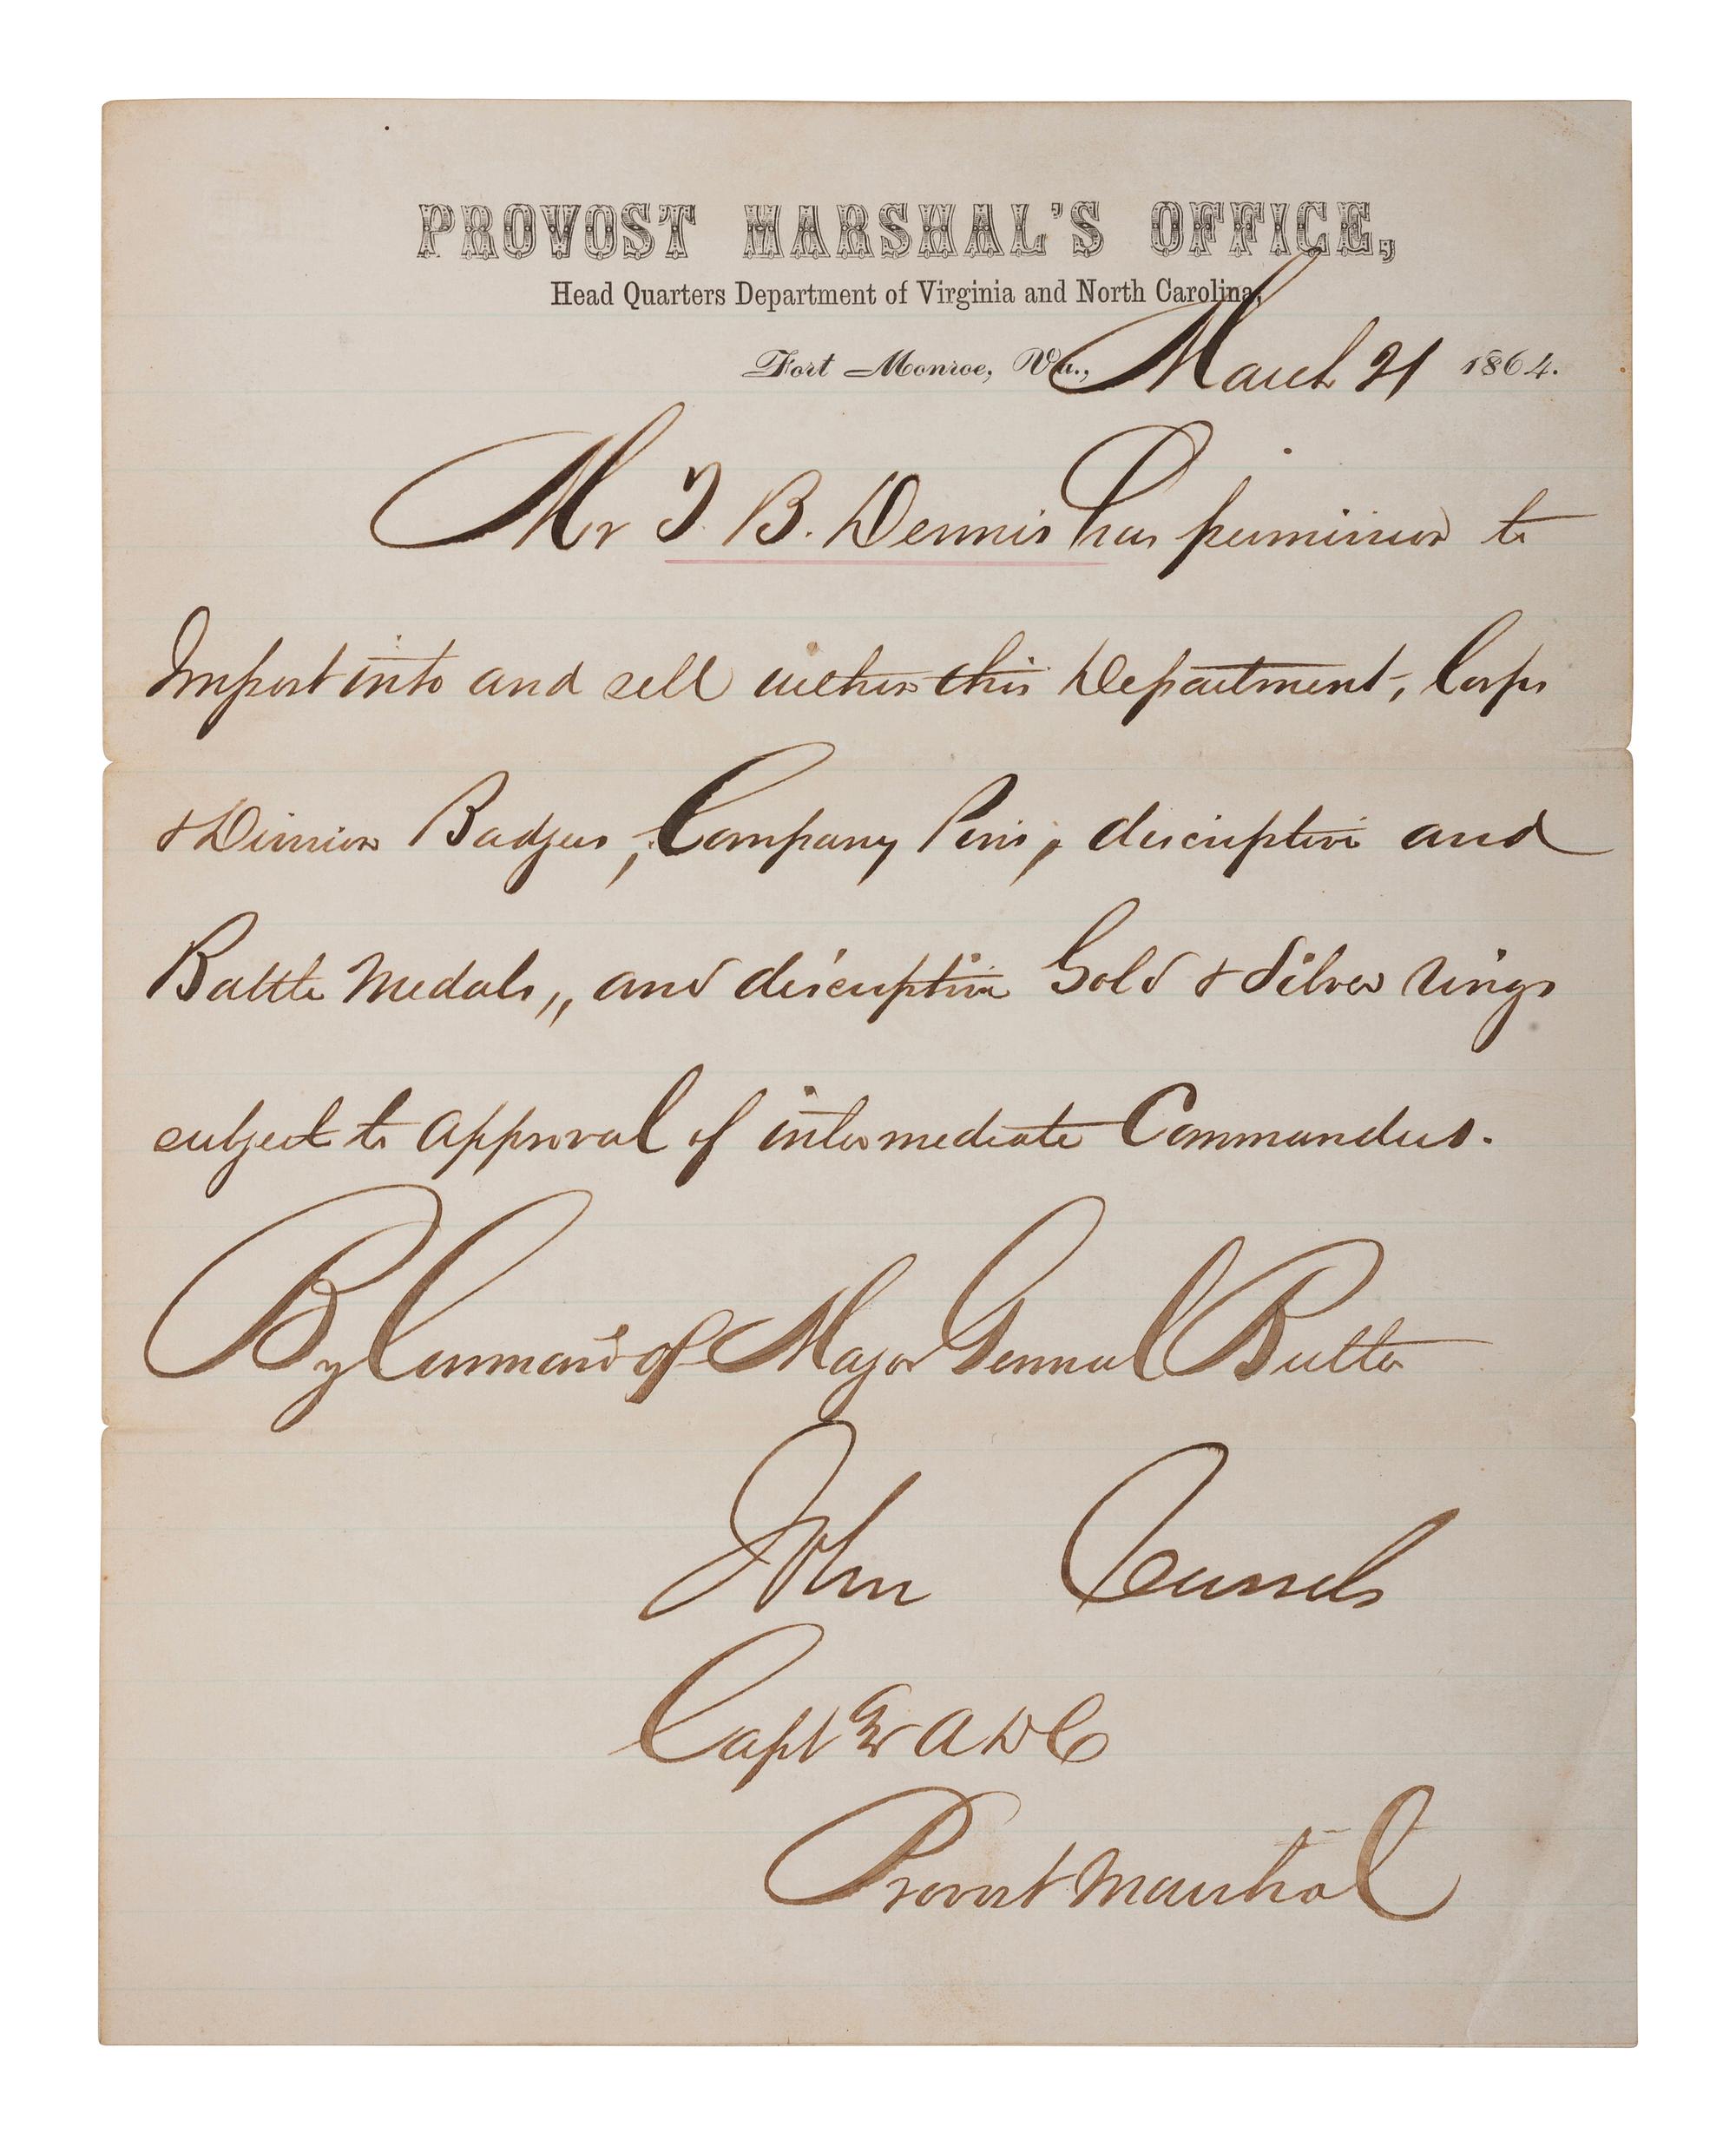 PROVOST MARSHAL'S OFFICE,
Head Quarters Department of Virginia and North Carolina,
Fort Monroe, Va., March 21 1864.
Mr T B. Dennis has permission to
Import into and sell within this Department, Corps
& Division Badges, Company Pins, descriptive and
Battle Medals,, and descriptive Gold & Silver rings
subject to approval of intermediate Commanders.
By Command of Major General Butler
John Cassels
Capt & A D C
Provost Marshal